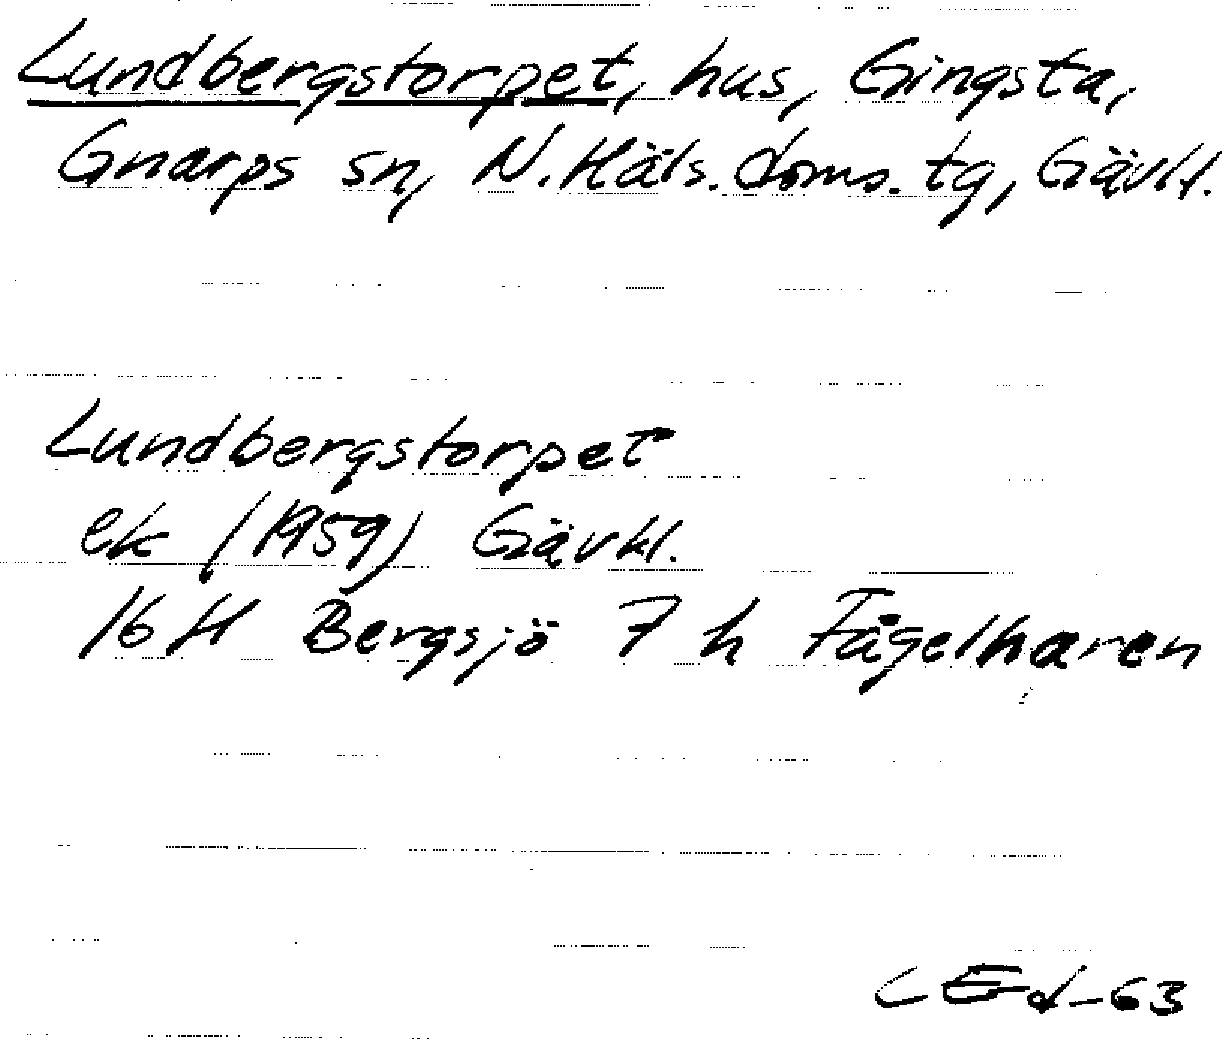 Lundbergstorpet, hus, Gingsta,
Gnarps sn, N. Häls. doms. tg, Gävkl.
Lundbergstorpet
ek (1959) Gävkl.
16 H Bergsjö 7 h Fågelharen
CEd-63